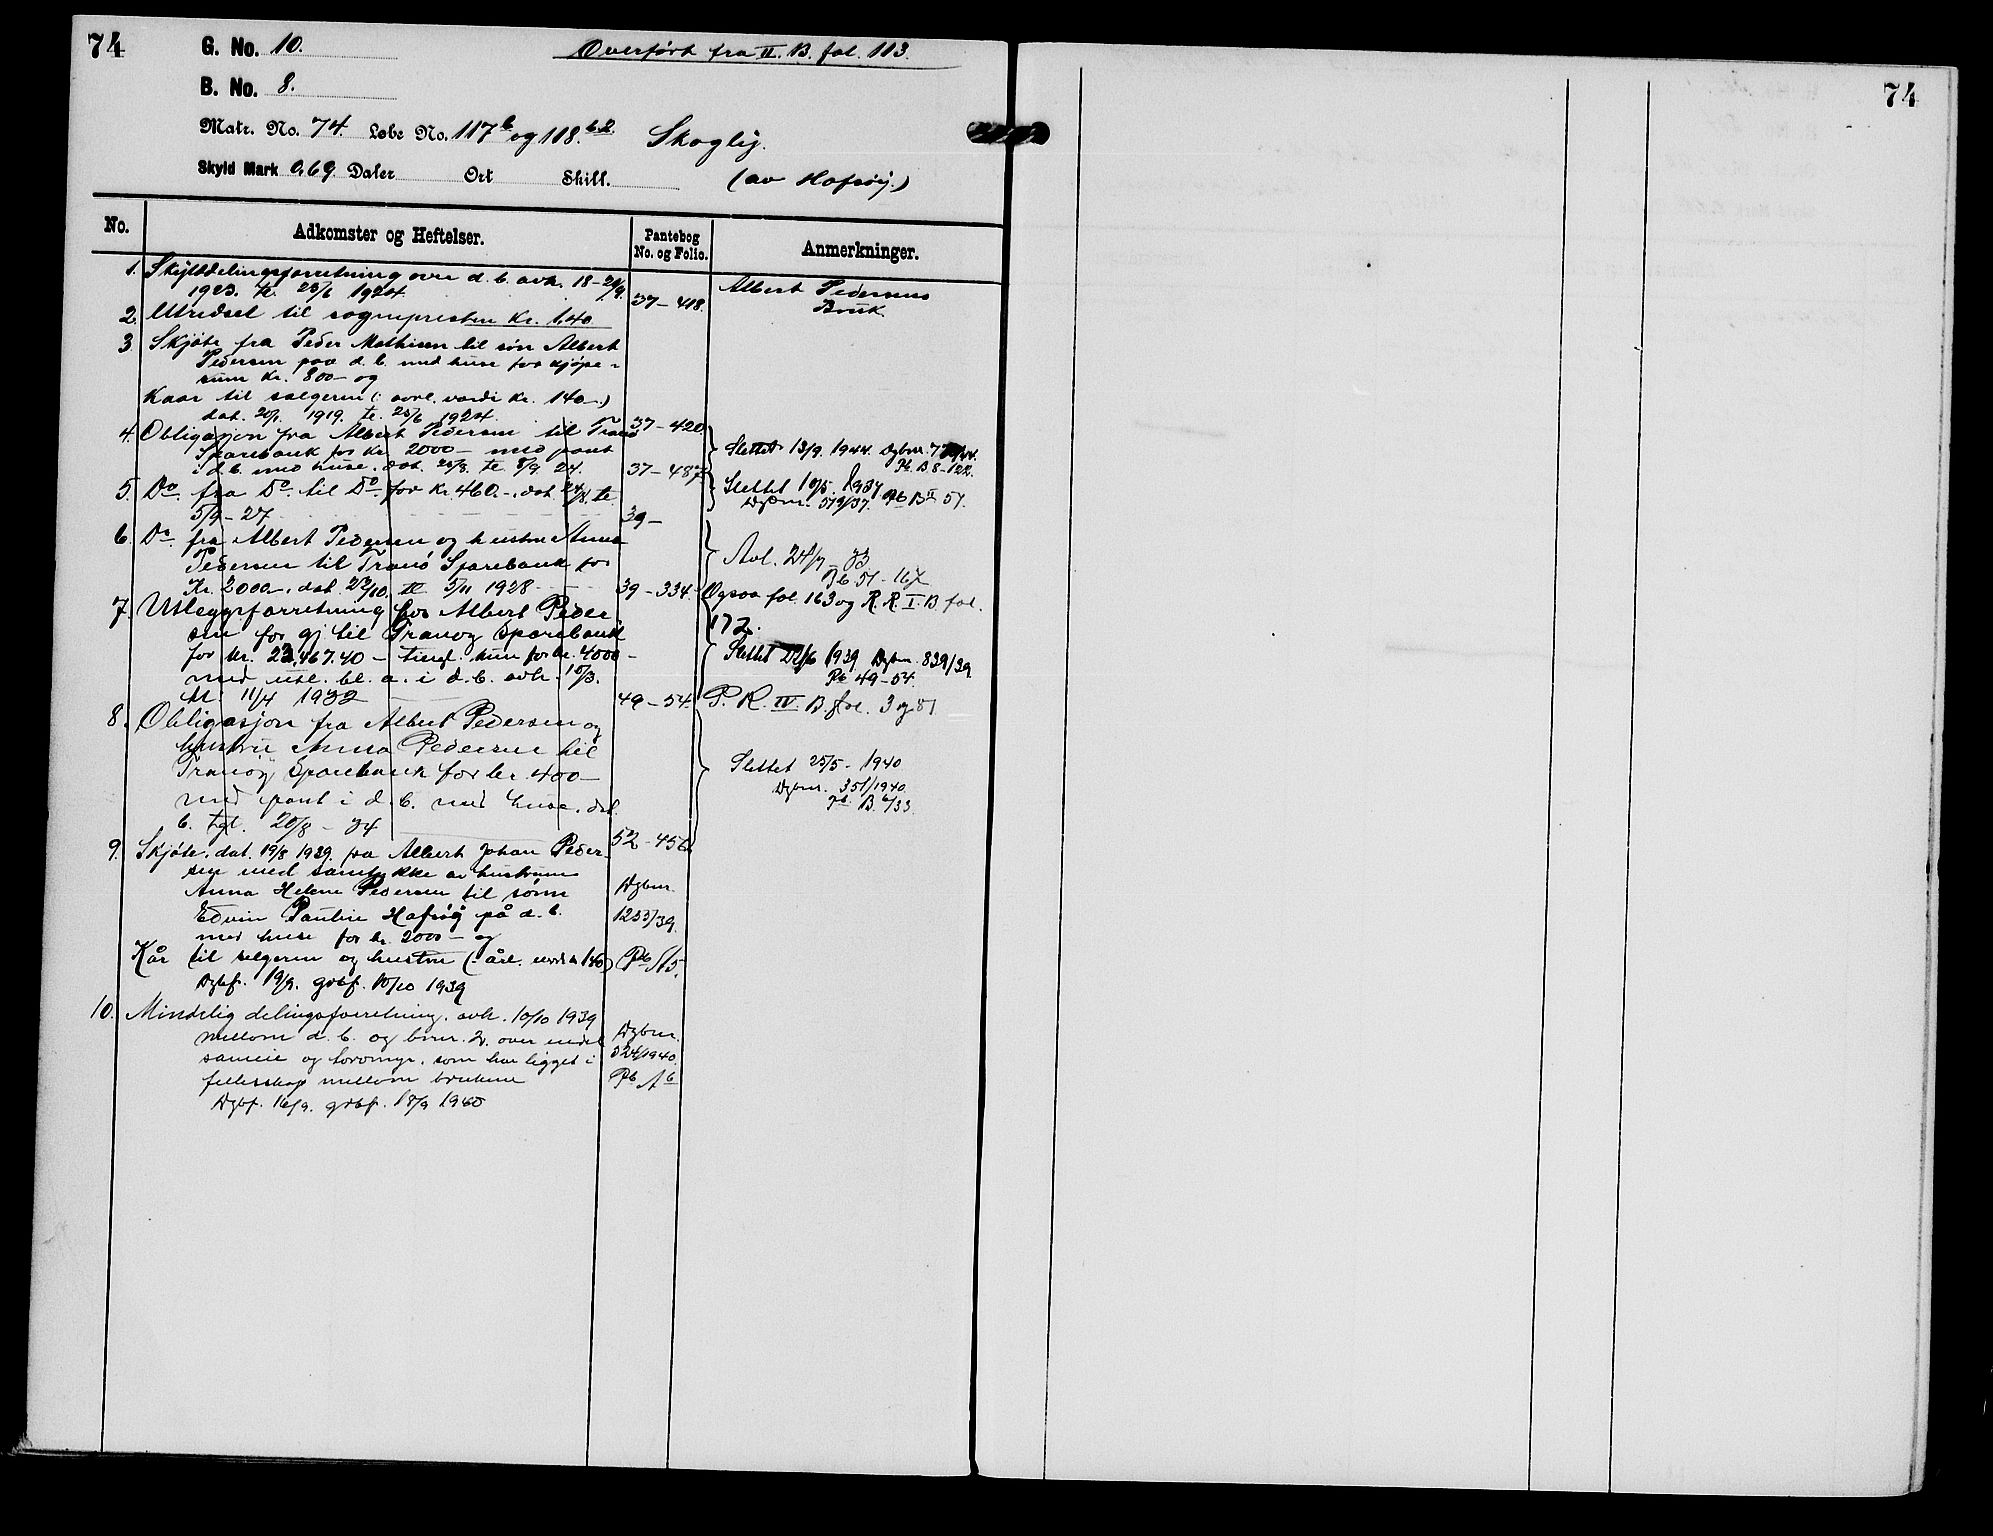 74
G. No. 10.
Overført fra II. B. fol. 113.
74
B. No. 8.
Matr. No. 74 Løbe No. 117b og 118.b2 Skoglig.
Skyld Mark 0,69 Daler Ort Skill. (av Hofsøy.)
No. Adkomster og Heftelser. Pantebog No. og Folio. Anmerkninger.
1. Skylddelingsforretning over d. b. avh. 18-
1923. tl. 23/6 1924. 37-418. Albert Pedersens
Bruk.
2. Utredsel til sognepresten Kr. 1.40
3 Skjøte fra Peder Mathisen til søn Albert
Pedersen paa d. b. med huse for kjøpe-
sum Kr. 800- og
Kaar til sælgeren (: aarl. værdi Kr. 140.-)
dat. 1919. tl. 23/6 1924. 37-420
4. Obligasjon fra Albert Pedersen til Tranø
Sparebank for Kr. 2000- med pant
i d. b. med huse. dat. 25/8. tl. 5/9 24. 37-487
Slettet 13/9 1944 Dgbnr.
Pb. B 8-122.
5. Do. fra Do. til Do. for Kr. 460.-, dat. 24/8. tl.
5/9-27 39-
Slettet 10/5 1937
Dgbnr. 519/37. Pb BII 51.
6. Do. fra Albert Pedersen og hustru Anna
Pedersen til Tranø Sparebank for
Kr. 2000-, dat. 23/10. tl. 5/11 1928 39-334.
Avl. 24/7-33
Pb 51-167
Ogsaa fol. 163 og R. R. I. B fol.
172.
7. Utleggsforretning hos Albert Peder
sen for gj til Tranøy Sparebank
for kr. 23,467.40 - tingl. kun for kr. 4000-
med utl. bl. a. i d. b. avh. 10/3.
tl. 11/4 1932 49-54.
Slettet 22/6 1939 Dgbnr. 839/39
Pb 49-54.
P. R. IV. B. fol. 3 og 81
8. Obligasjon fra Albert Pedersen og
hustru Anna Pedersen til
Tranøy Sparebank for kr. 400-
med pant i d. b. med huse. dat.
6. tgl. 20/8-34 52-456
Slettet 25/5-1940
Dgbnr. 351/1940.
Pb. B 6/33
9. Skjøte, dat. 19/8 1939. fra Albert Johan Peder-
sen med samtykke av hustruen
Anna Helene Pedersen til sønn
Edvin Paulin Hofsøy på d. b.
med huse for kr. 2000- og
Dgbnr.
1253/39.
Kår til selgeren og hustru (: årl. verdi kr 140) Pb A5.
Dgbf. 19/9. grbf. 10/10 1939
10. Mindelig delingsforretning. avh. 10/10 1939
mellom d. b. og bnr. 2. over endel
sameie og torvmyr. som har ligget i
fellesskap mellom brukene
Dgbf. 16/9. grbf. 18/9 1940
Dgbnr.
524/1940.
Pb A6